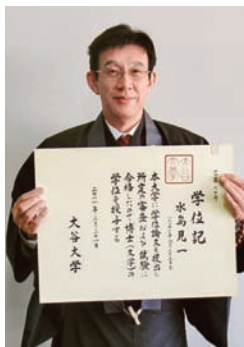 学位記
水島見一
本大学に学位論文を提出し
所定の審査および試験に
合格したので博士(文学)の
学位を授与する
大谷大学